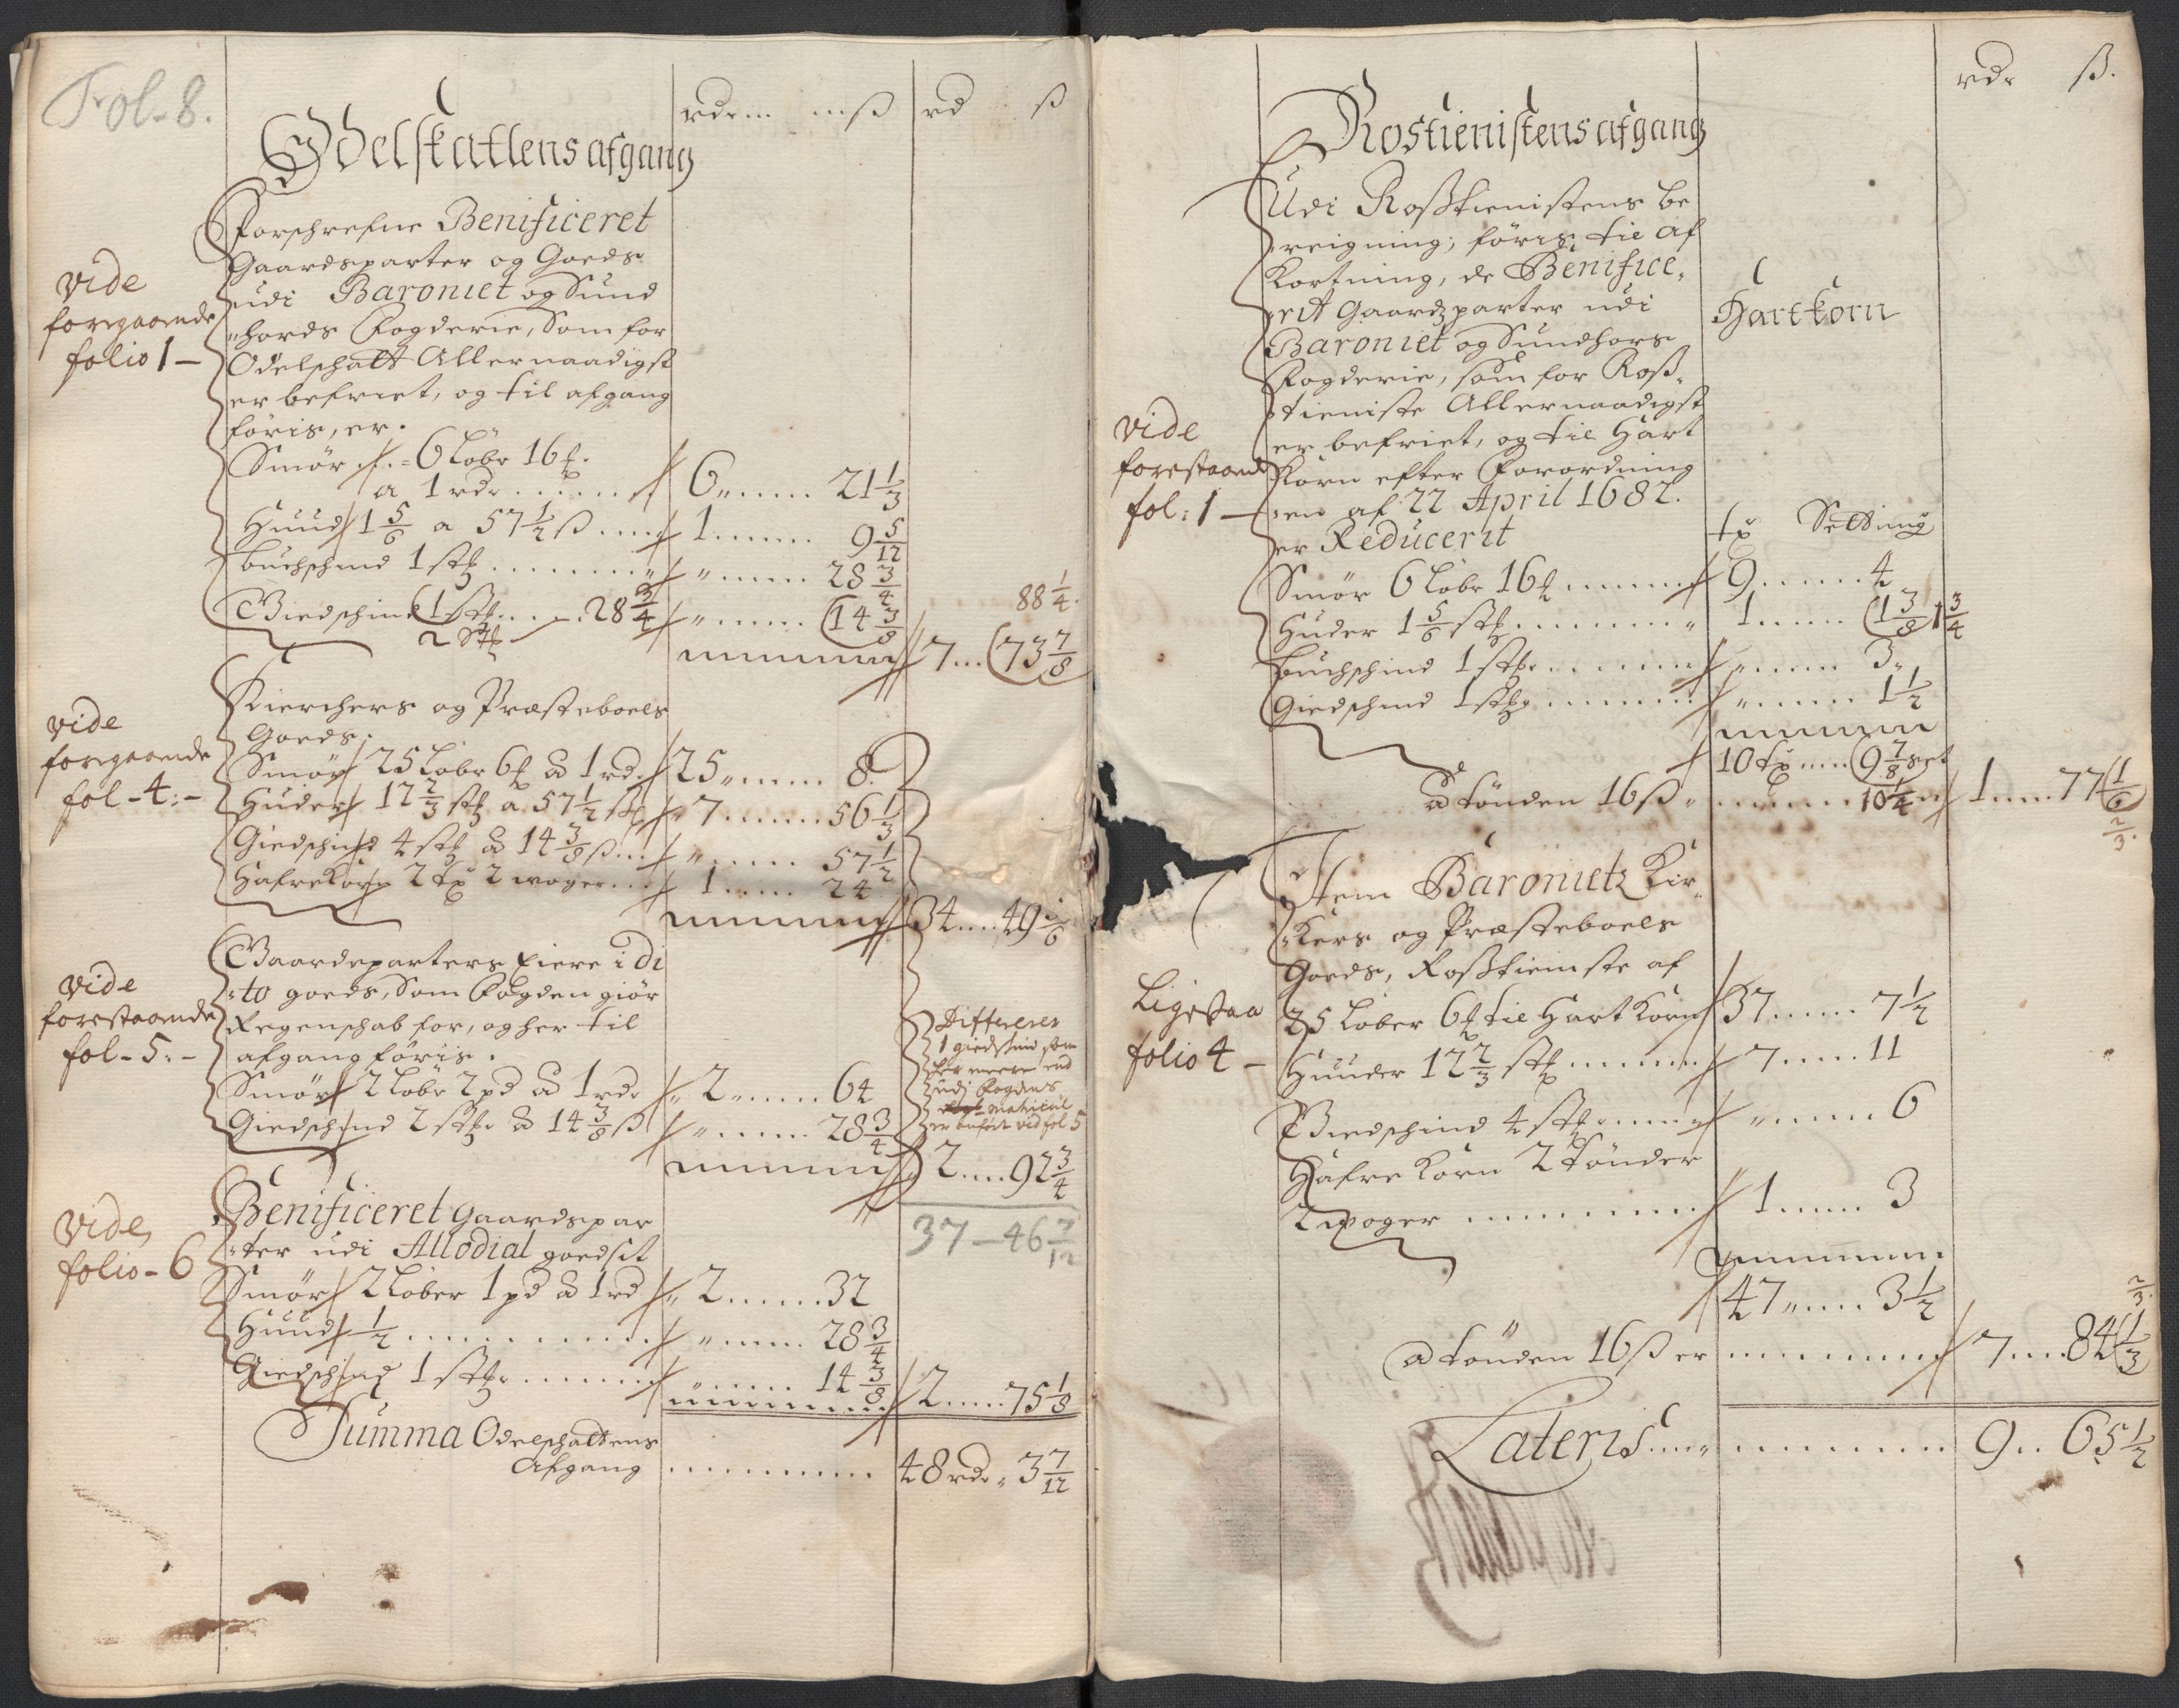 Fol. 8.
rdr ß rd ß
Odelskatlens afgang
Forschrefne Benificeret
Gaardsparter og Goeds
udi Baroniet og Sund
hords Fogderie, Som for
Odelschatt Allernaadigst
er befriet, og til afgang
føris, er.
vide
foregaaende
folio 1 -
Smør 6 Løbr 16
a 1 rdr 6 21 1/3
Huud 1 5/6 a 57 1/2 ß 1 9 5/12
Buchschind 1 stk " 28 3/4
Giedschind 1 stk 28 3/4 " 14 3/8 88 1/4
2 stk
7 73 7/8
Kierchers og Præsteboels
Goeds.
vide
foregaaende
fol - 4 : -
Smør 25 Løbr 6 a 1 rdr 25 8
Huder 12 2/3 stk a 57 1/2 7 56 1/3
Giedschind 4 stk a 14 3/8 ß " 57 1/2
Hafrekorn 2 2 woger 1 24
34 49 5/6
Gaardeparters Eiere i di
to goeds, Som Fogden giør
Regenschab for, og her til
afgang føris.
vide
forestaaende
fol - 5 : -
Smør 2 Løbr 2 pd a 1 rdr 2 64
Giedschind 2 stk a 14 3/8 ß " 28 3/4
2 92 3/4
Differerer
1 giedskind som
her meere end
udj Fogdens
matricul
er anført vid fol 5
37 - 46 7/12
Benificeret gaardspar
ter udi Allodial goedsit
vide
folio - 6
Smør 2 Løber 1 pd a 1 rd 2 32
Huud 1/2 " 28 3/4
Giedschind 1 stk " 14 3/8 2 75 1/8
Summa Odelschattens
Afgang 48 rdr 3 7/12
rdr ß.
Rostienistens afgang
Udi Roßtienistens be
reigning, føris til af
Kortning, de Benifice,
rit Gaardzparter udi
Baroniet og Sundhors
Fogderie, som for Roß,
tieniste Allernaadigst
er befriet, og til Hart
Korn efter Forordning
en af 22 April 1682.
er Reducerit
Hartkorn
vide
forestaaende
fol : 1 -
Setting
Smør 6 Løbr 16 9 4
Huder 1 5/6 stk 1 1 3/8 1 3/4
Buchschind 1 stk " 3
Giedschind 1 stk " 1 1/2
10 9 7/8 set
a tønden 16 ß 10 1/4 1 77 1/6
2/3
Item Baronietz Kir
kers og Præsteboels
Goeds, Roßtieniste af
Ligesaa
folio 4 -
25 Løber 6 til Hart Korn 37 7 1/2
Huuder 12 2/3 stk 7 11
Giedschind 4 stk " 6
Hafre Korn 2 tønder
2 woger 1 3
47 3 1/2
2/3
a tønden 16 ß er 7 84 1/3
Lateris 9 65 1/2